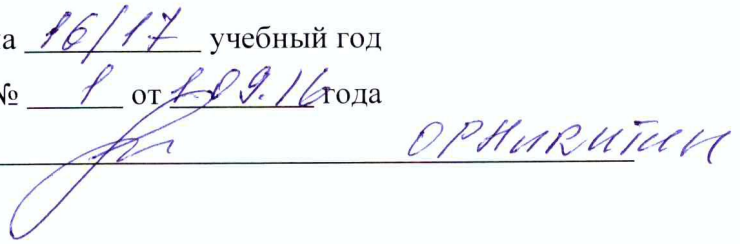 на 16/17 учебный год
№ 1 от 1.09.16 года
ОРНикитин